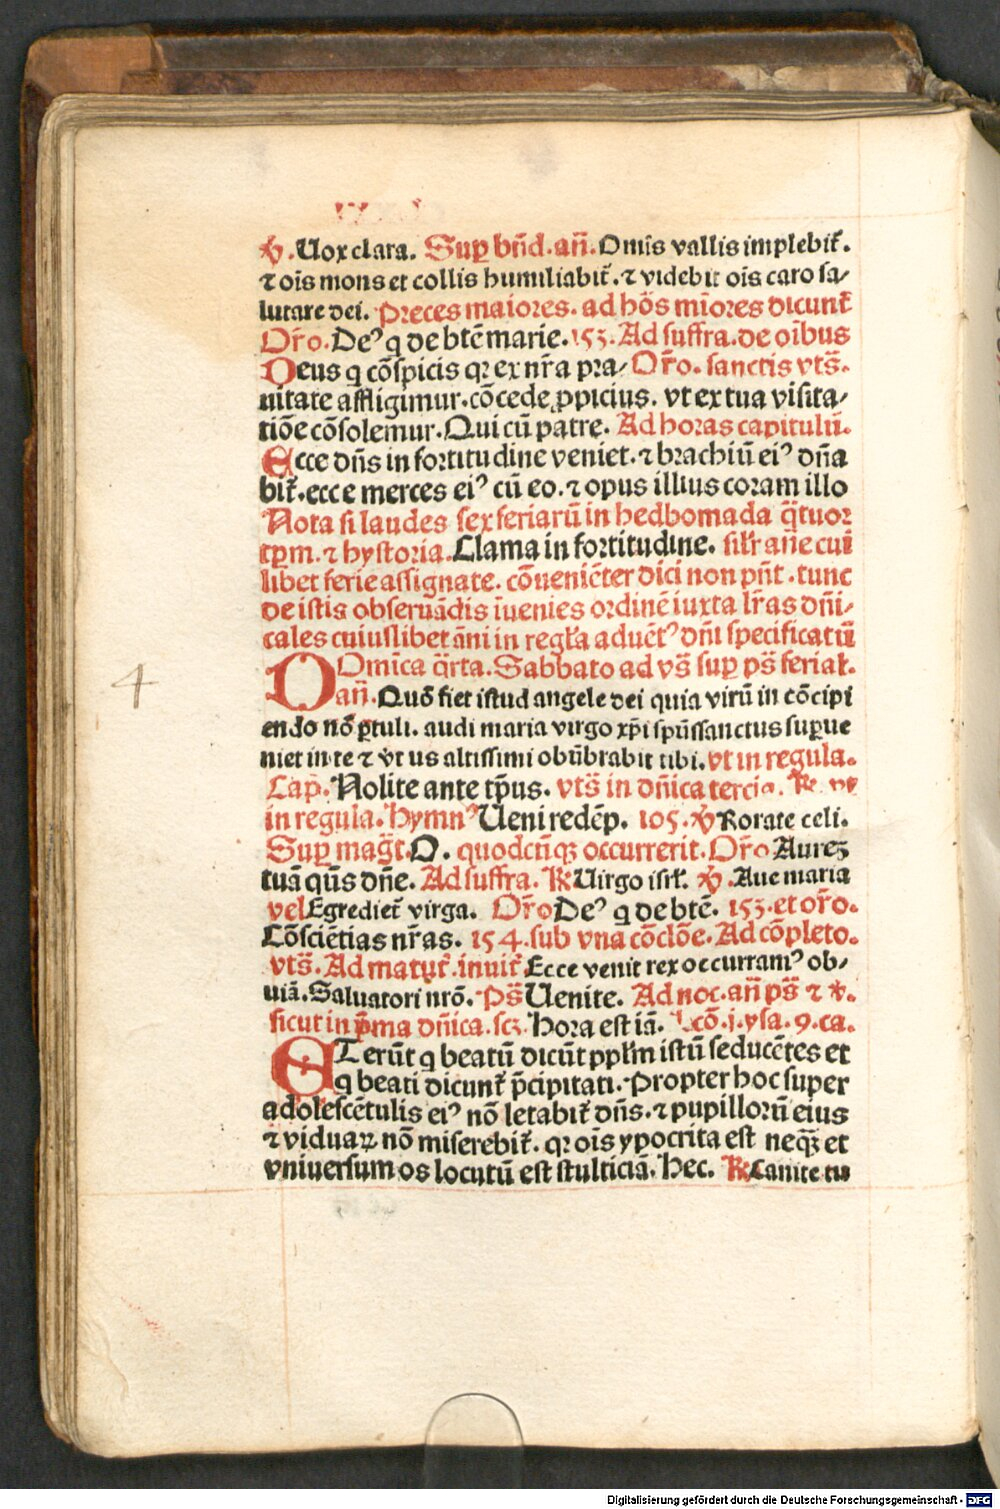 ℣. Uox clara. Suꝑ bñd. añ. Omĩs vallis implebit᷑.
⁊ oĩs mons et collis humiliabit᷑. ⁊ videbit oĩs caro sa⸗
lutare dei. Preces maiores. ad hõs mĩores dicunt᷑
Oŕo. De⁹ q de btẽ marie. 153. Ad suffra. de oĩbus
Deus q cõspicis qꝛ ex nr̃a pra⸗ Or̃o. sanctis vts̃.
uitate affligimur. cõcede ꝓpicius. vt ex tua visita⸗
tiõe cõsolemur. Qui cũ patre. Ad horas capitulũ.
Ecce dñs in fortitudine veniet. ⁊ brachiũ ei⁹ dña
bit᷑. ecce merces ei⁹ cũ eo. ⁊ opus illius coram illo
Nota si laudes sex feriarũ in hebdomada q̃tuor
tꝑm. ⁊ hystoria. Clama in fortitudine. sil̃r añe cui
libet ferie assignate. cõueniẽter dici non pñt. tunc
de istis obseruãdis ĩuenies ordinẽ iuxta lr̃as dñi⸗
cales cuiuslibet ãni in regl̃a aduẽt⁹ dñi specificatũ
DOmĩca q̃rta. Sabbato ad vs̃ suꝑ ps̃ ferial̃.
añ. Quõ fiet istud angele dei quia virũ in cõcipi
endo nõ ꝑtuli. audi maria virgo xp̃i spũssanctus suꝑue
niet in te ⁊ v̾tus altissimi obũbrabit tibi. vt in regula.
Cap̃. Nolite ante tp̃us. vts̃ in dñica tercia. ℟. vs
in regula. Hymn⁹ Ueni redẽp. 105. ℣ Rorate celi.
Suꝑ mag̃t. O. quodcũqꝫ occurrerit. Or̃o Aureꝫ
tuã qũs dñe. Ad suffra. ℟ Uirgo isrl̃. ℣. Aue maria
vel Egrediet᷑ virga. Or̃o De⁹ q de btẽ. 153. et or̃o.
Cõsciẽtias nr̃as. 154. sub vna cõclõe. Ad cõpleto.
vts̃. Ad matut᷑. inuit᷑ Ecce venit rex occurram⁹ ob⸗
uiã. Saluatori nrõ. Ps̃ Uenite. Ad noc. añ ps̃ ⁊ ℣.
sicut in p̃ma dñica. scꝫ. Hora est iã. Lcõ. j. ysa. 9. ca.
ETerũt q beatũ dicũt ppl̃m istũ seducẽtes et
q beati dicunt᷑ p̃cipitati. Propter hoc super
adolescẽtulis ei⁹ nõ letabit᷑ dñs. ⁊ pupillorũ eius
⁊ viduaꝝ nõ miserebit᷑. qꝛ oĩs ypocrita est neq̃ꝫ et
vniuersum os locutũ est stulticiã. Hec. ℟ Canite tu
4
Digitalisierung gefördert durch die Deutsche Forschungsgemeinschaft - DFG